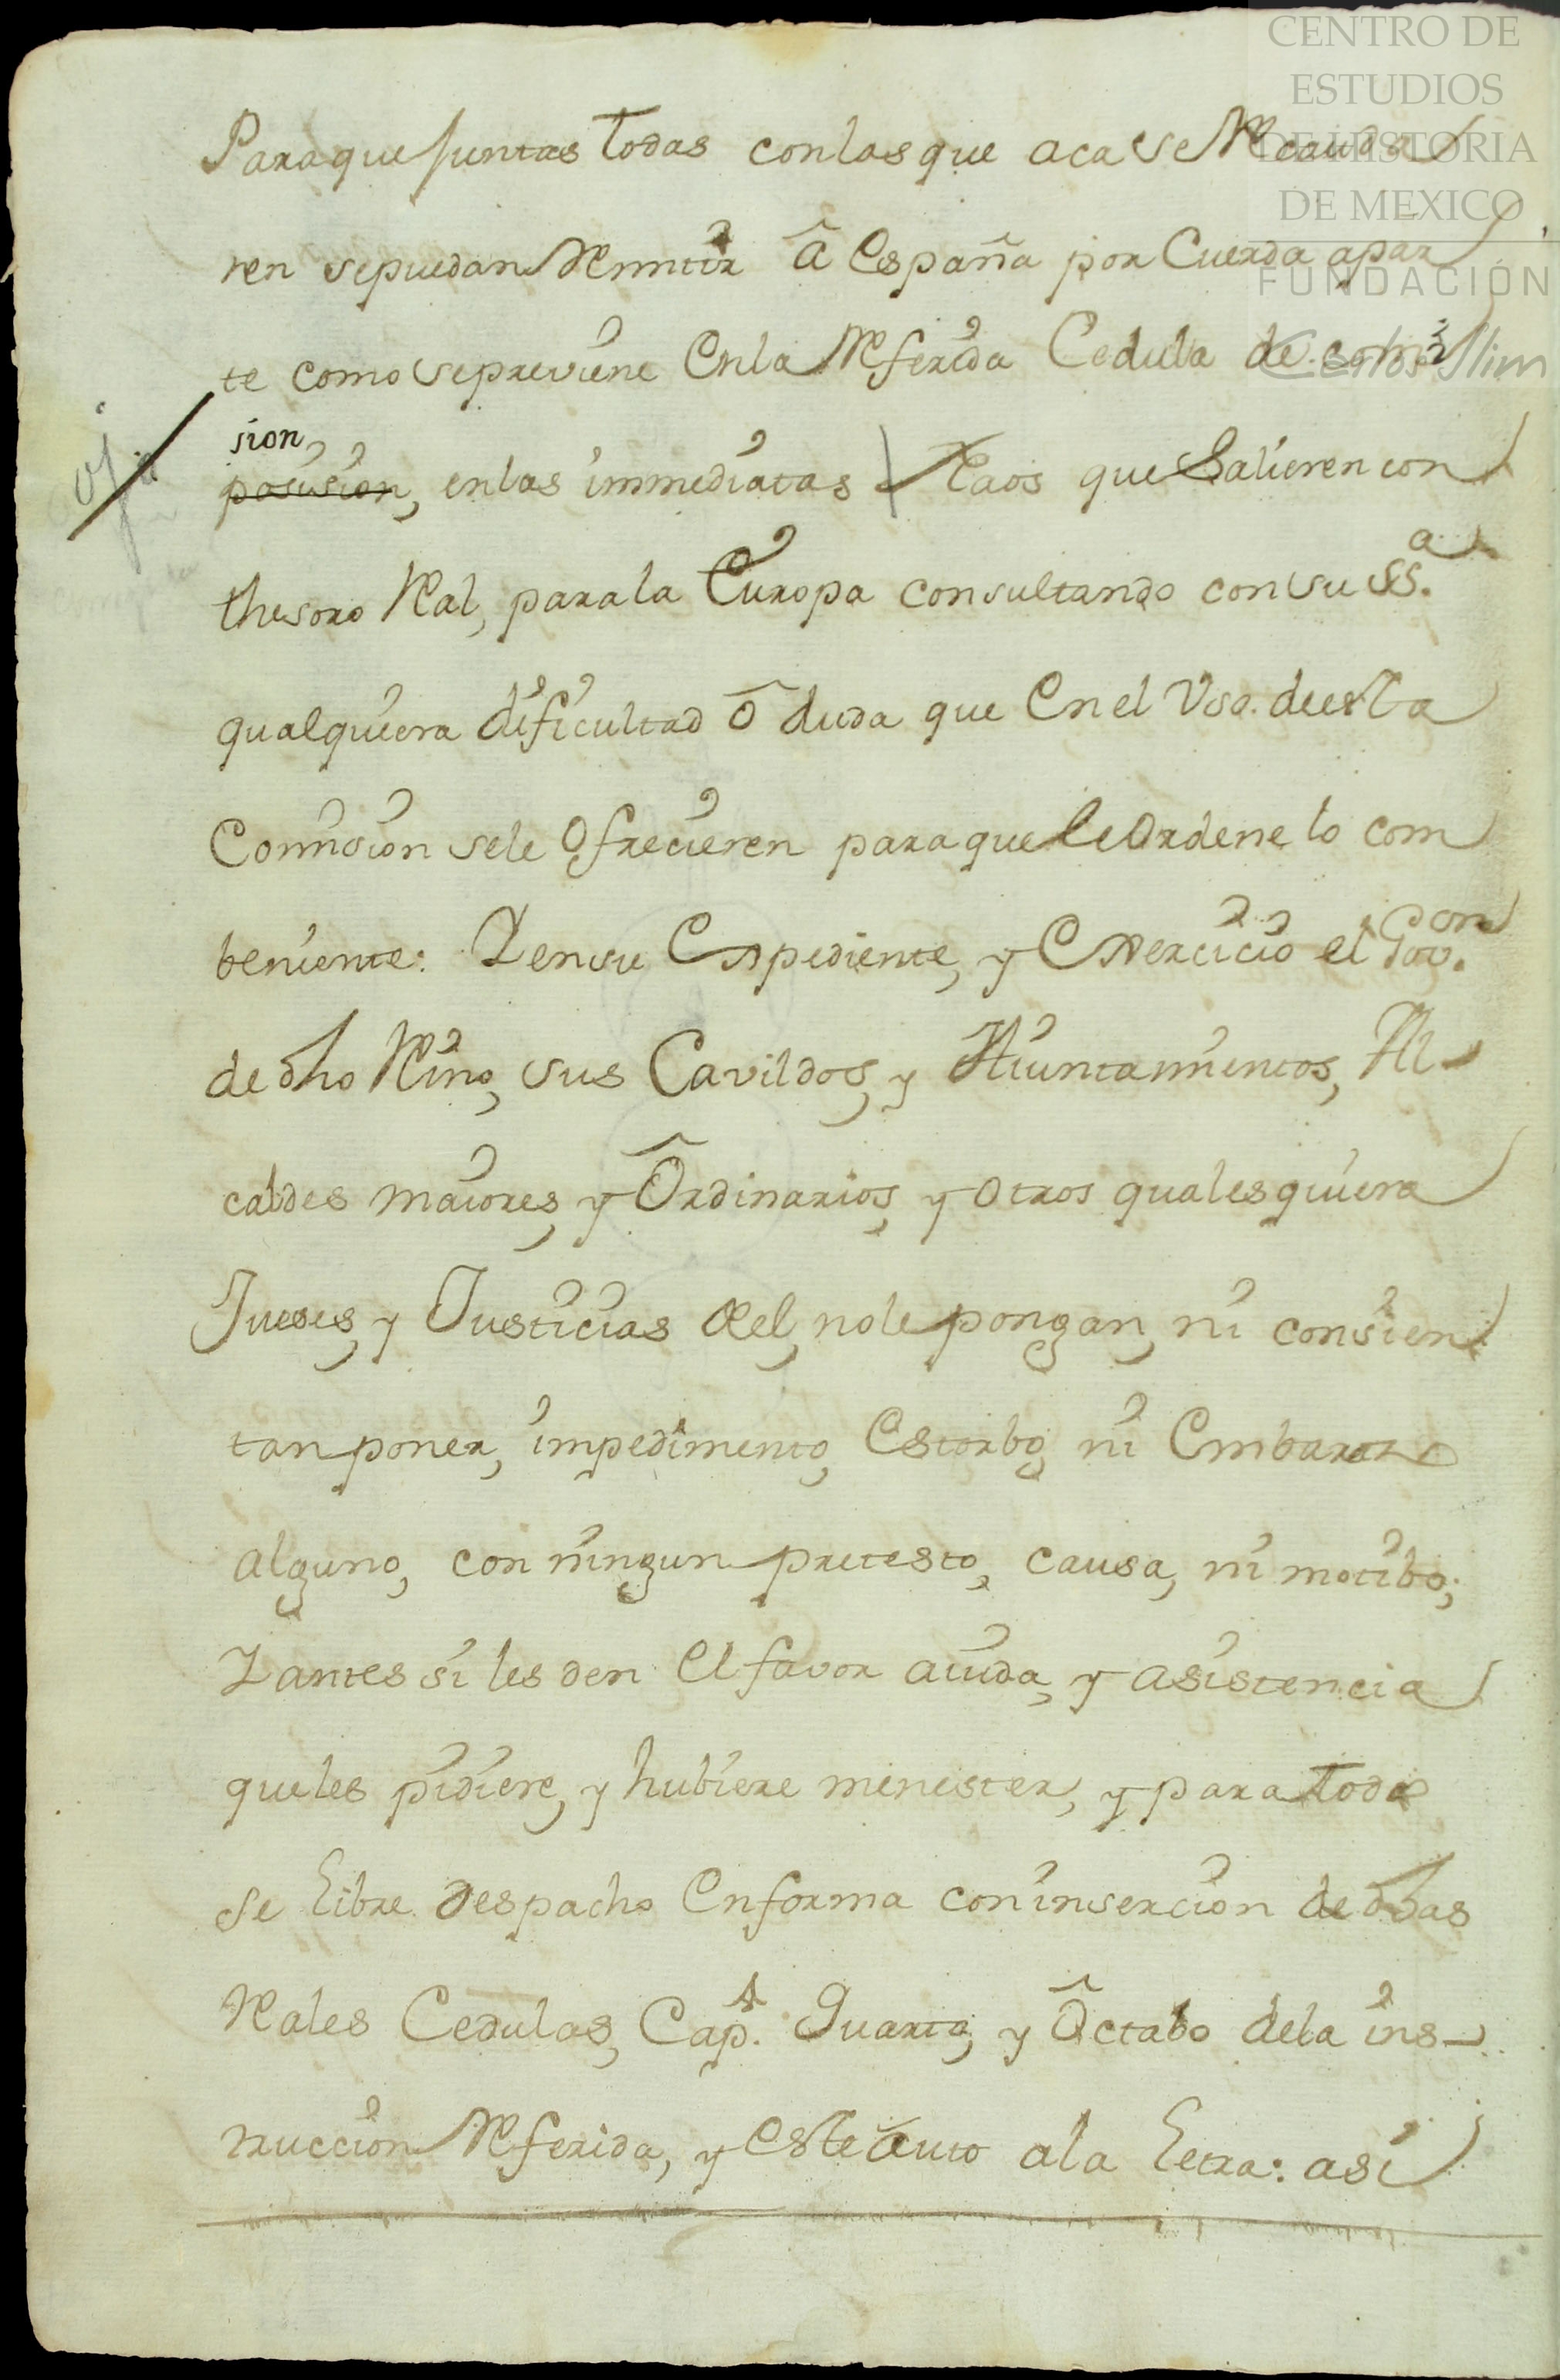 CENTRO DE
ESTUDIOS
DE HISTORIA
DE MEXICO
FUNDACIÓN
Carlos Slim
Paraque juntas todas conlasque aca se Recauda
ren sepuedan Remitir â España por Cuerda apar
te como sepreviene Enla Referida Cedula de comi
sion
posision, enlas immediatas Naos que Salieren con
thesoro Real, parala Europa consultando con su SSª.
qualquiera dificultad ô duda que En el Vso. deesta
Comision sele Ofrecieren paraque le Ordene lo com
beniente: Y en su Expediente, y Exercicio el Govon.
de dho Reino, sus Cavildos, y Aiuntamientos, Al-
caldes maiores, y Ordinarios, y otros qualesquiera
Jueses, y Justicias del, nole pongan, ni consien
tan poner, impedimento, Estorbo, ni Embarazo
alguno, con ningun pretesto, causa, ni motibo;
Y antes si les den El favor aiuda, y asistencia
queles pidiere, y hubiere menester, y para todo
se libre despacho En forma con insercion de dhas
Reales Cedulas, Cap. Quarto, y Octabo dela ins-
truccion Referida, y este auto ala Letra: asi